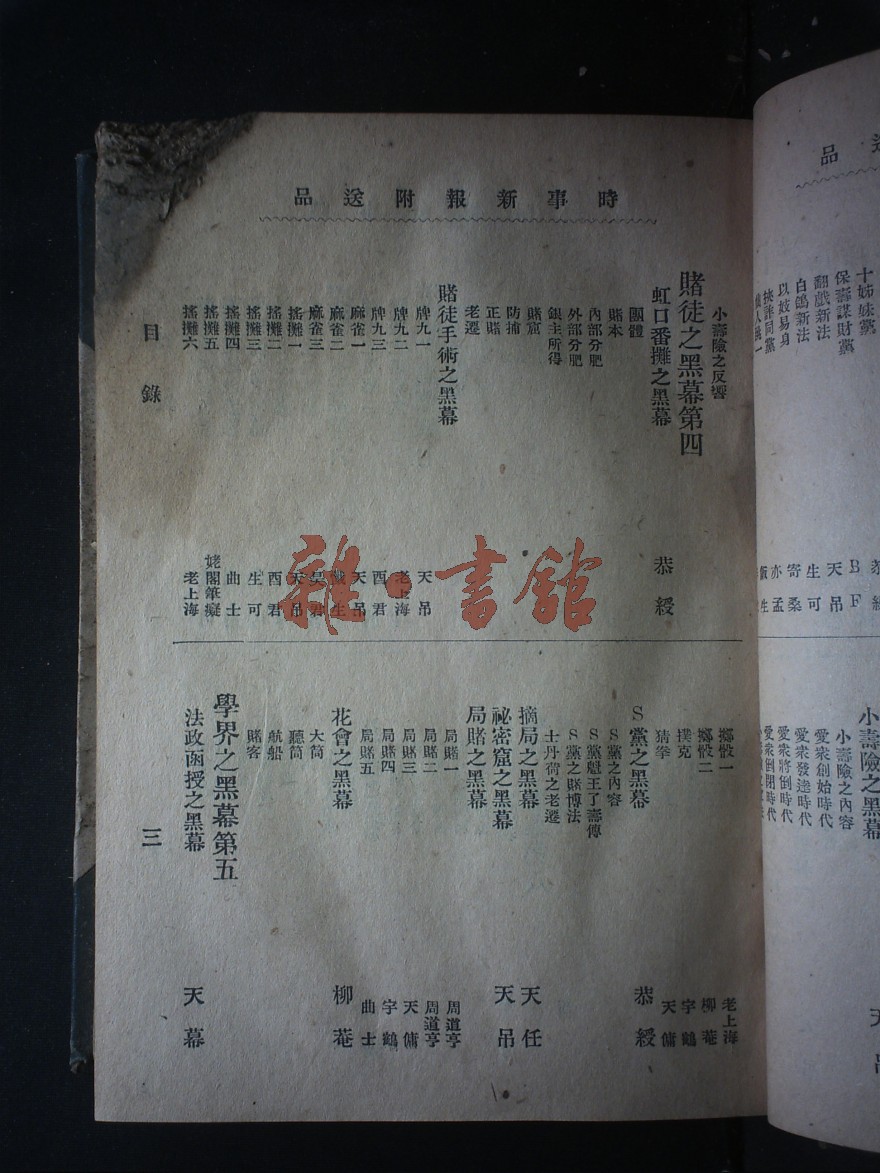 品
十姊妹黨
保壽謀財黨 B F
翻戲新法 天吊
白鴿新法 生可
以妓易身 寄桑
亦孟
小壽險之黑幕
小壽險之內容
愛衆創始時代
愛衆發達時代
愛衆將倒時代
愛衆倒閉時代
時事新報附送品
小壽險之反響
賭徒之黑幕第四
虹口番攤之黑幕 恭綬
團體
賭本
內部分肥
外部分肥
銀主所得
賭窟
防捕
正賭
老遷
賭徒手術之黑幕
牌九一 天吊
牌九二 老上海
牌九三 酉君
麻雀一 天吊
麻雀二
麻雀三 吳君
搖攤一 天吊
搖攤二 酉君
搖攤三 生可
搖攤四 曲士
搖攤五 姥閣筆癡
搖攤六 老上海
擲骰一 老上海
擲骰二 柳菴
撲克 宇鶴
猜拳 天傭
S黨之黑幕 恭綬
S黨之內容
S黨魁王了壽傳
S黨之賭博法
士丹荷之老遷
摘局之黑幕 天任
祕密窟之黑幕 天吊
局賭之黑幕
局賭一 周道亨
局賭二 周道亨
局賭三 天傭
局賭四 宇鶴
局賭五 曲士
花會之黑幕 柳菴
大筒
聽筒
航船
賭客
學界之黑幕第五
法政函授之黑幕 天幕
目錄
三
雜·書館